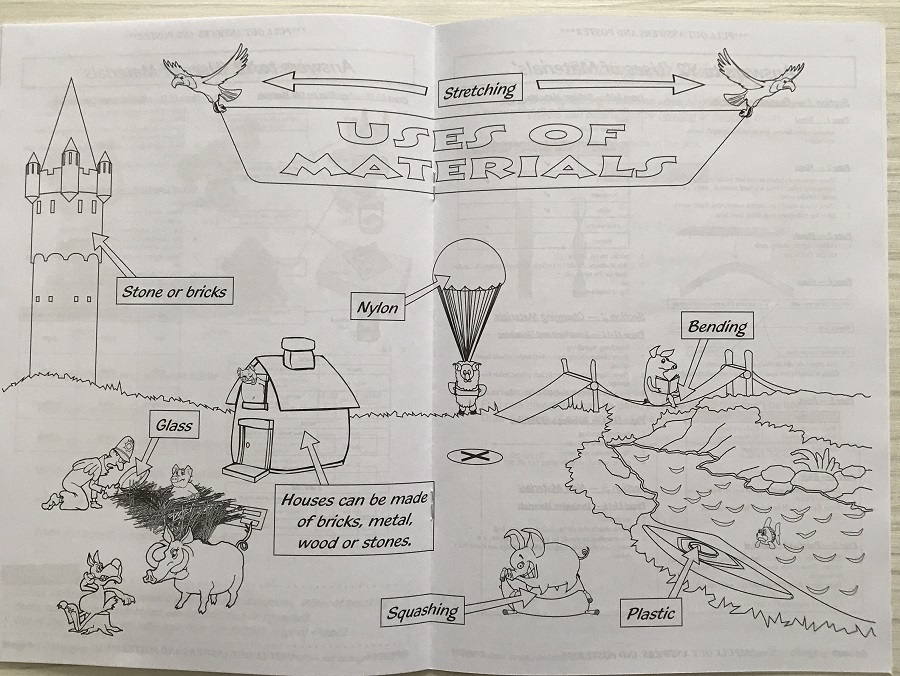 Stretching
USES OF
MATERIALS
Stone or bricks
Nylon
Bending
Glass
Houses can be made
of bricks, metal,
wood or stones.
Squashing
Plastic